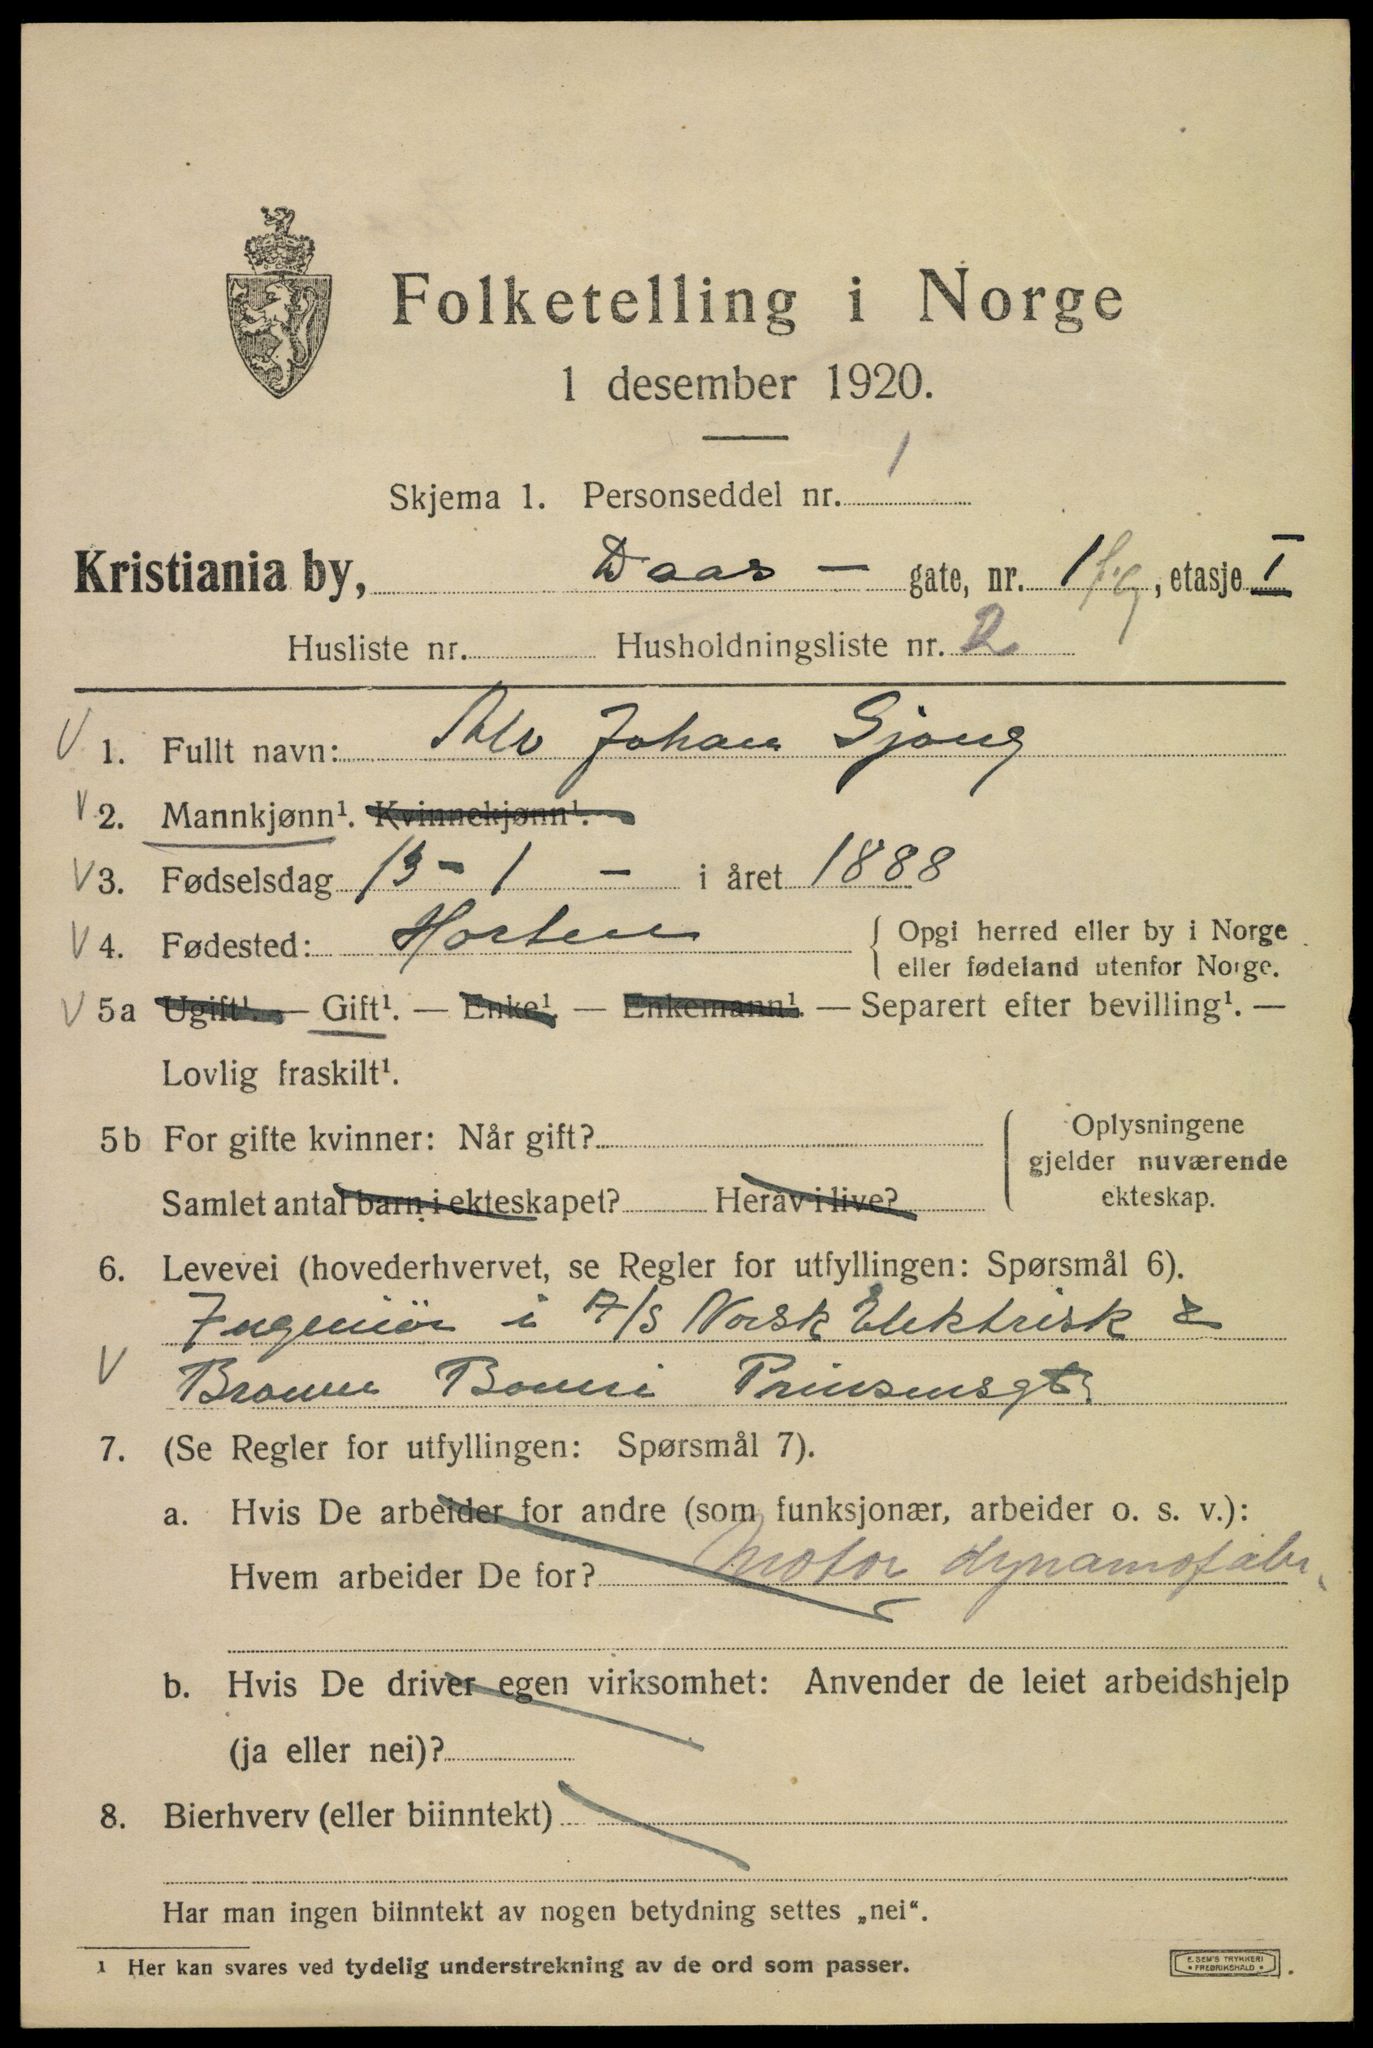 Folketelling i Norge
1 desember 1920.
Skjema 1. Personseddel nr. 1
Kristiania by, Daas — gate, nr. 1 , etasje I
Husliste nr. Husholdningsliste nr. 2
V 1. Fullt navn: Alv Johan Gjøng
V 2. Mannkjønn¹. Kvinnekjønn¹.
V 3. Fødselsdag 13 - 1 - i året 1888
V 4. Fødested: Horten { Opgi herred eller by i Norge
eller fødeland utenfor Norge.
V 5a Ugift¹. — Gift¹. — Enke¹. — Enkemann¹. — Separert efter bevilling¹. —
Lovlig fraskilt¹.
5b For gifte kvinner: Når gift? { Oplysningene
gjelder nuværende
Samlet antal barn i ekteskapet? Herav i live? ekteskap.
6. Levevei (hovederhvervet, se Regler for utfyllingen: Spørsmål 6).
Ingeniør i A/S Norsk Elektrisk &
V Brown Boveri Prinsensgt
7. (Se Regler for utfyllingen: Spørsmål 7).
a. Hvis De arbeider for andre (som funksjonær, arbeider o. s. v.):
Hvem arbeider De for? Motor dynamofabr.
b. Hvis De driver egen virksomhet: Anvender de leiet arbeidshjelp
(ja eller nei)?
8. Bierhverv (eller biinntekt)
Har man ingen biinntekt av nogen betydning settes „nei“.
1 Her kan svares ved tydelig understrekning av de ord som passer.
E. SEM'S TRYKKERI
• FREDRIKSHALD •